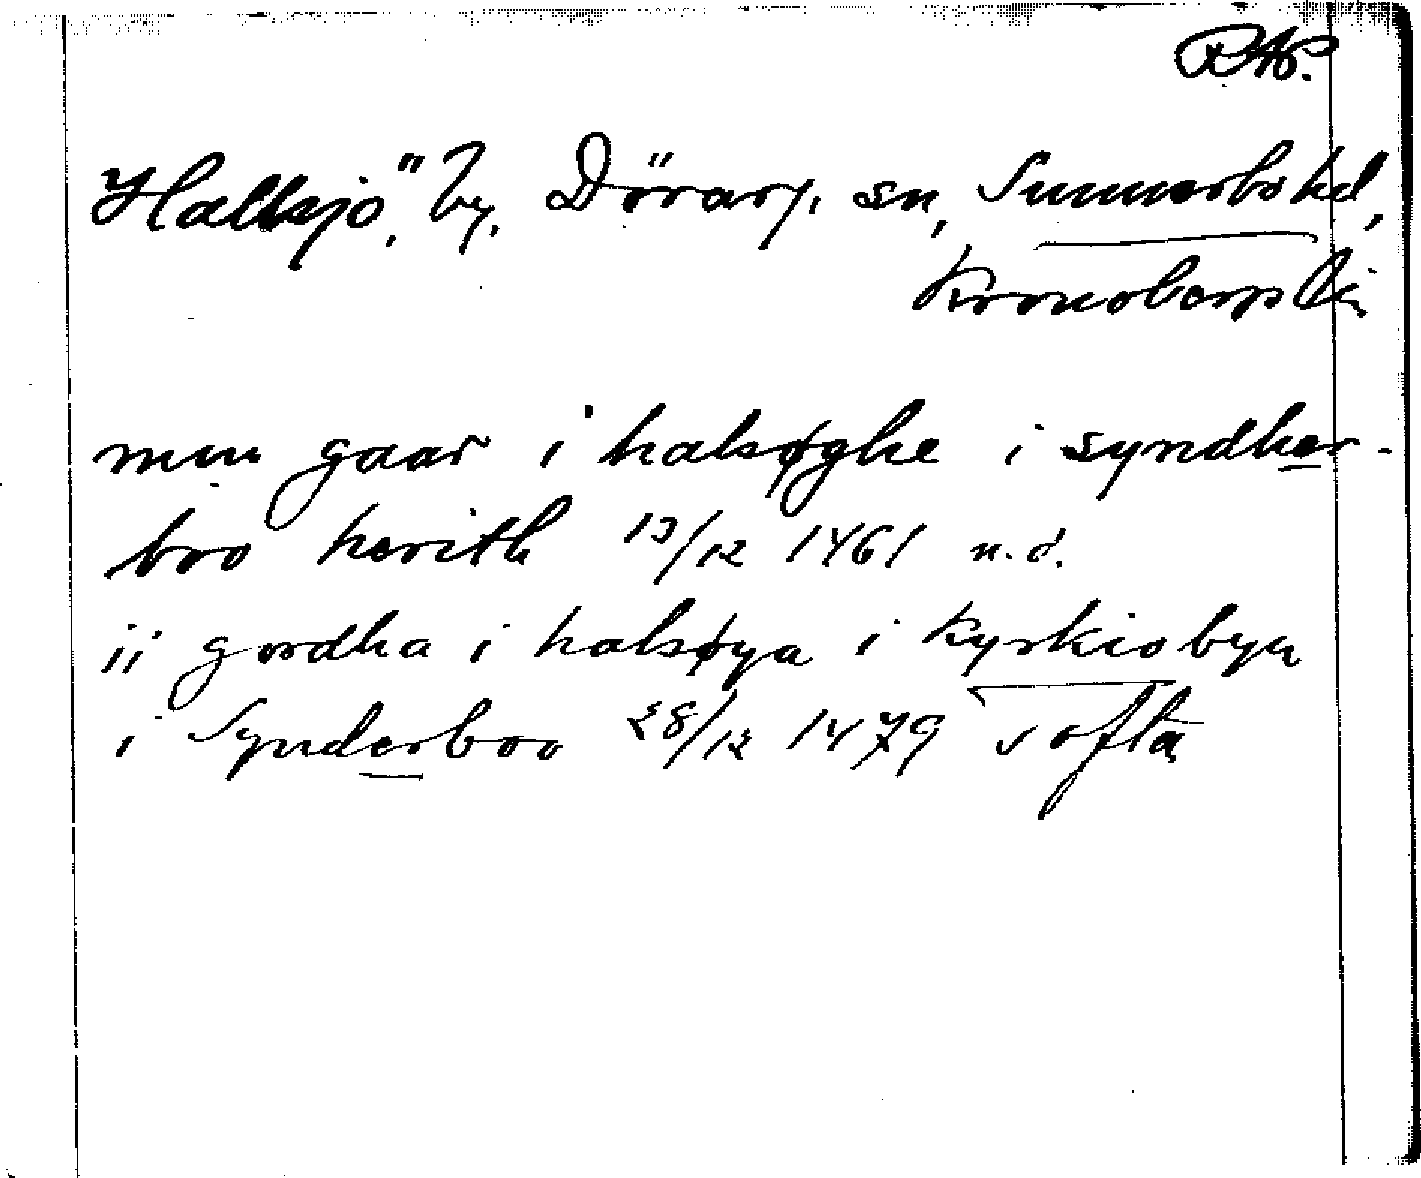 RAP.
Hallsjö, by, Dörarp, sn, Sunnerbo hd,
Kronobergs län
min gaar i halsøghe i syndher-
boo herith 13/12 1461 n.d.
ii gordha i halsøya i kyrkiobyn
i Synderboo 28/12 1479 Tofta